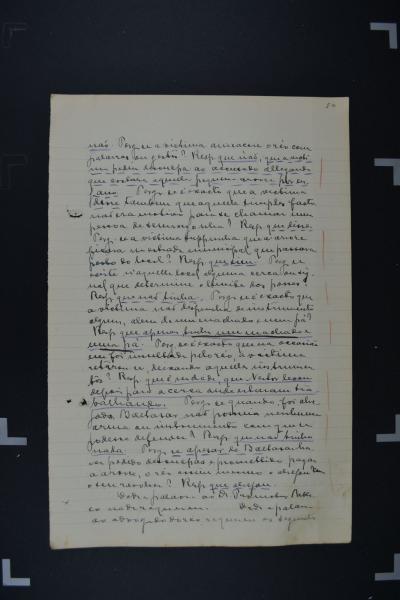 50
não. Perg. se a victima ameaçou o réo com
palavras ou gestos? Resp. que não, que a victi
ma pediu desculpa ao accusado allegando
que cortára aquelle pequeno arvore por en
gano. Perg. se é exacto que a victima
disse tambem que aquelle simples facto
não era motivo para se chamar uma
pessoa de sem vergonha? Resp. que disse.
Perg. se a victima suppunha que a arvore
ficava na estrada municipal que passava
perto do local? Resp. que sim. Perg. se
existe n'aquelle local alguma cerca ou sig
nal que determine o limite das posses?
Resp. que não tinha. Perg. se é exacto que
a victima não dispunha de instrumento
algum, além de um machado e uma pá?
Resp. que apenas tinha um machado e
uma pá. Perg. se é exacto que na occasião
em foi insultado pelo réo, a victima
retirou-se, deixando aquelles instrumen
tos? Resp. que é verdade, que
depois para a cerca onde estavam tra
balhando. Perg. se quando foi alve
jado Balthazar não possuia nenhuma
arma ou instrumento com que se
podesse defender? Resp. que não tinha
nada. Perg. se apesar de Balthazar ha
ver pedido desculpas e promettido pagar
a arvore, o réo assim mesmo o alvejou
com revolver? Resp. que alvejou.
Dada a palavra ao Dr. Promotor Publi
co nada requereu. Dada a palavra
ao advogado do réo requereu as seguintes